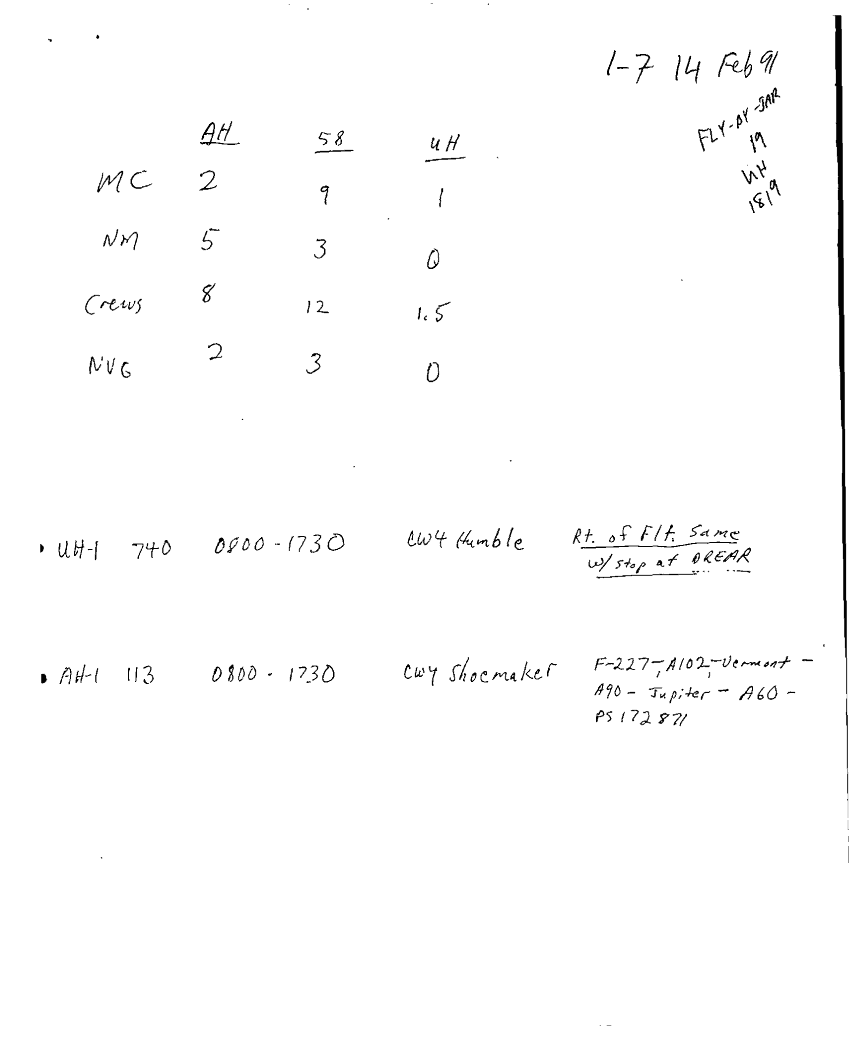 1-7 14 Feb 91
FLY-BY-JAR
19
UH
1819
AH 58 UH
MC 2 9 1
NM 5 3 0
Crews 8 12 1.5
NVG 2 3 0
UH-1 740 0800-1730 CW4 Humble Rt. of Flt. Same
w/ stop at DREAR
AH-1 113 0800-1730 CW4 Shoemaker F-227-A102-Vermont-
A90-Jupiter-A60-
PS 172871